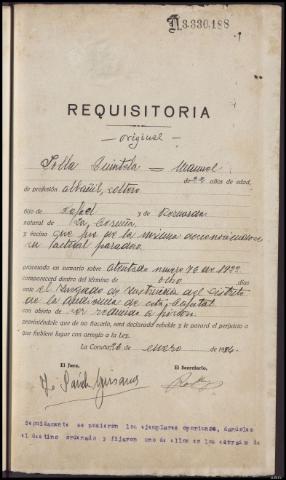 N 3.330.188
REQUISITORIA
— original —
Solla Quintela = Manuel
de 22 años de edad,
de profesión albañil, soltero
hijo de Rafael y de Rosenda
natural de La Coruña
y vecino que fue de la misma desconociendose
su actual paradero
procesado en sumario sobre atentado numero 76 de 1922
comparecerá dentro del término de ocho días
ante el Juzgado de Instrucción del distrito
de la Audiencia de esta Capital
con objeto de ser reducido a prision
previniéndole que de no hacerlo, será declarado rebelde y le parará el perjuicio a
que hubiere lugar con arreglo a la Ley.
La Coruña, 26 de enero de 1924.
El Juez, El Secretario,
Seguidamente se pusieron los ejemplares oportunos, dandoles
el destino ordenado y fijaron uno de ellos en los estrados de